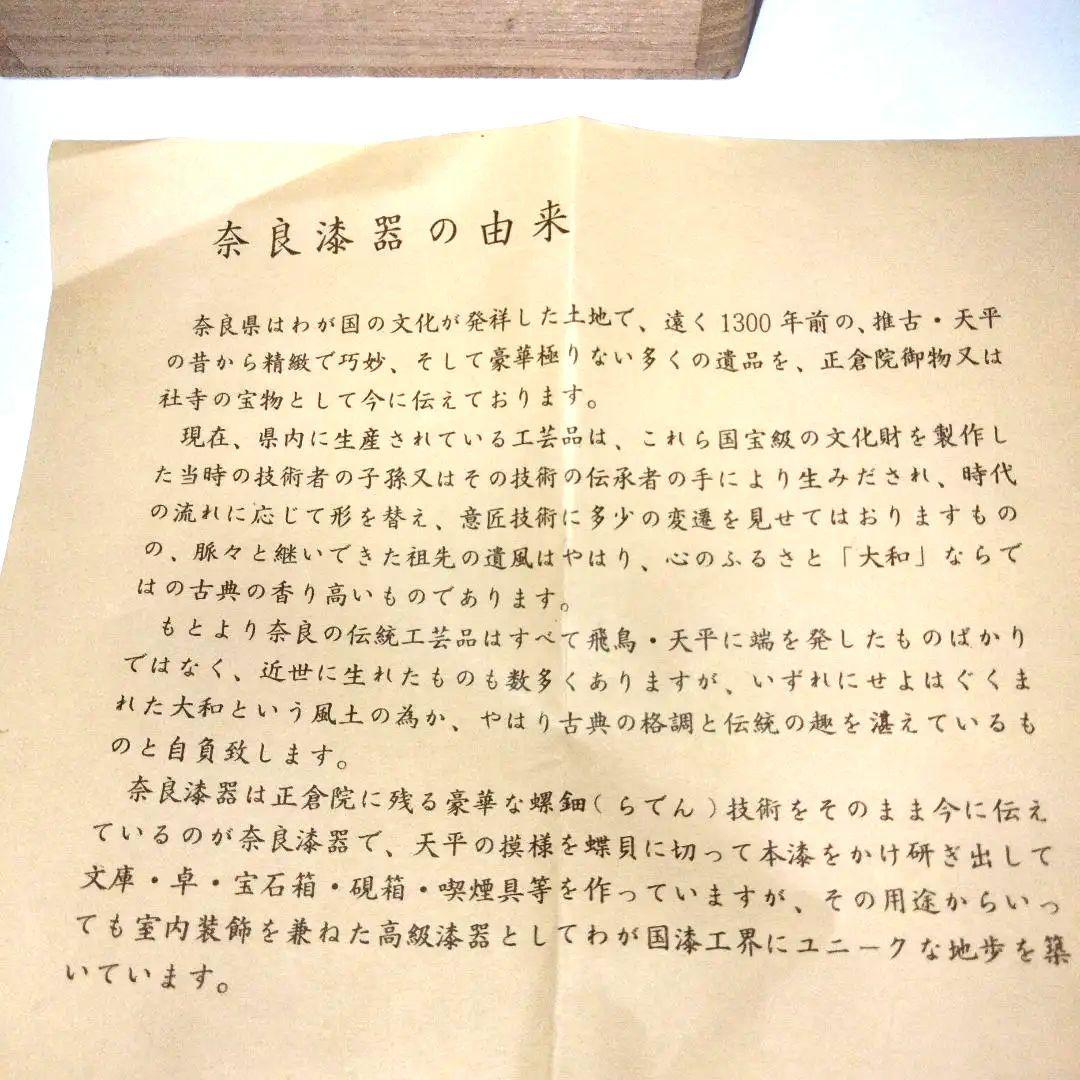 奈良漆器の由来
奈良県はわが国の文化が発祥した土地で、遠く1300年前の、推古・天平
の昔から精緻で巧妙、そして豪華極りない多くの遺品を、正倉院御物又は
社寺の宝物として今に伝えております。
現在、県内に生産されている工芸品は、これら国宝級の文化財を製作し
た当時の技術者の子孫又はその技術の伝承者の手により生みだされ、時代
の流れに応じて形を替え、意匠技術に多少の変遷を見せてはおりますもの
の、脈々と継いできた祖先の遺風はやはり、心のふるさと「大和」ならで
はの古典の香り高いものであります。
もとより奈良の伝統工芸品はすべて飛鳥・天平に端を発したものばかり
ではなく、近世に生れたものも数多くありますが、いずれにせよはぐくま
れた大和という風土の為か、やはり古典の格調と伝統の趣を湛えているも
のと自負致します。
奈良漆器は正倉院に残る豪華な螺鈿(らでん)技術をそのまま今に伝え
ているのが奈良漆器で、天平の摸様を蝶貝に切って本漆をかけ研ぎ出して
文庫・卓・宝石箱・硯箱・喫煙具等を作っていますが、その用途からいっ
ても室内装飾を兼ねた高級漆器としてわが国漆工界にユニークな地歩を築
いています。